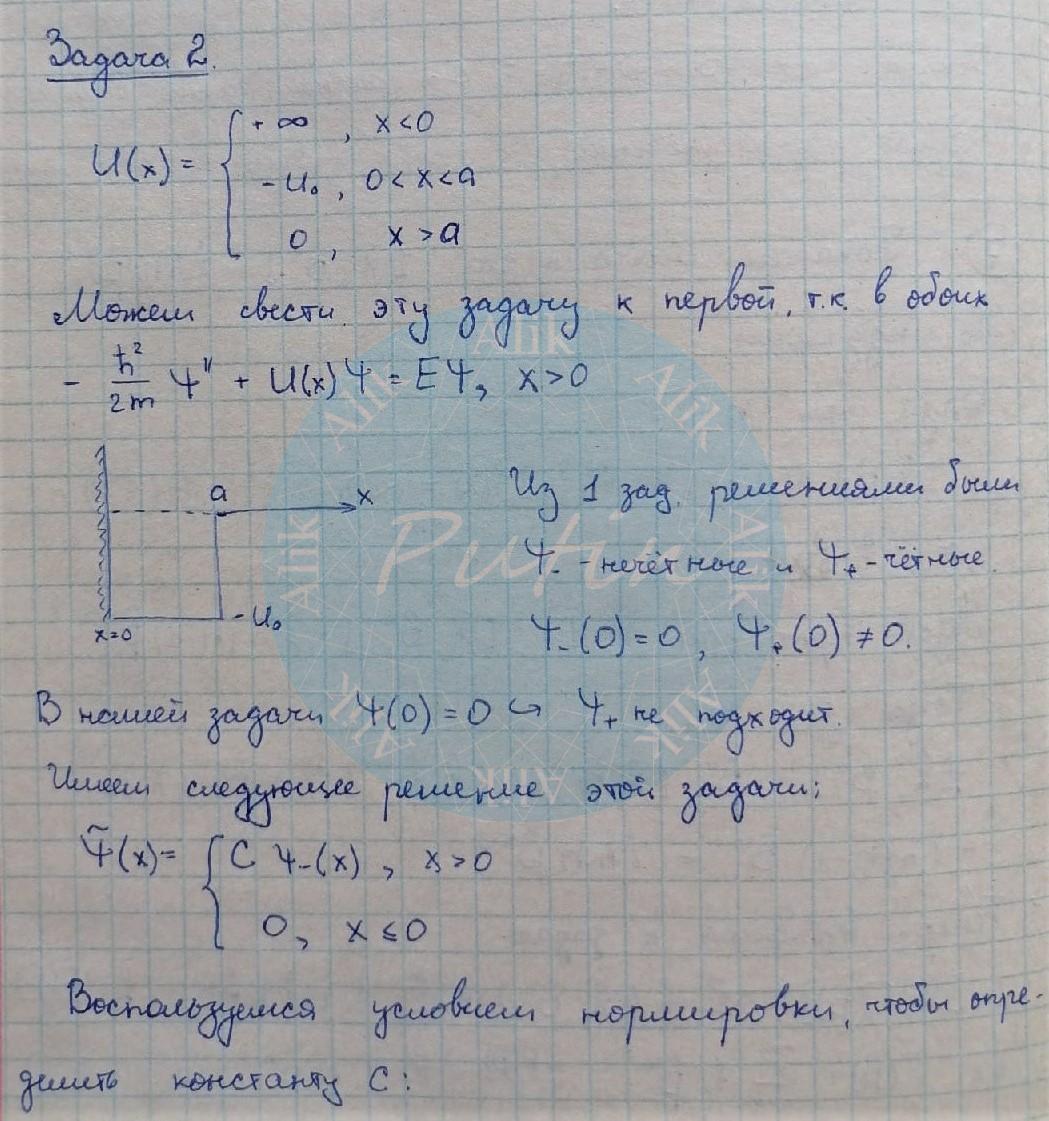 Задача 2.
U(x) = { +∞ , x<0
-U₀ , 0<x<a
0 , x>a
Можем свести эту задачу к первой, т.к. в обоих
- ħ²/2m Ψ'' + U(x)Ψ = EΨ, x>0
a x
Из 1 зад. решениями были
Ψ₋ - нечётные и Ψ₊ - чётные.
x=0 -U₀
Ψ₋(0) = 0 , Ψ₊(0) ≠ 0.
В нашей задачи Ψ(0) = 0 ↪ Ψ₊ не подходит.
Имеем следующее решение этой задачи:
Ψ̃(x) = { C Ψ₋(x) , x>0
0, x ≤ 0
Воспользуемся условием нормировки, чтобы опре-
делить константу C:
Putik
Alik
Alik
Alik
Alik
Alik
Alik
Alik
Alik
Alik
Alik